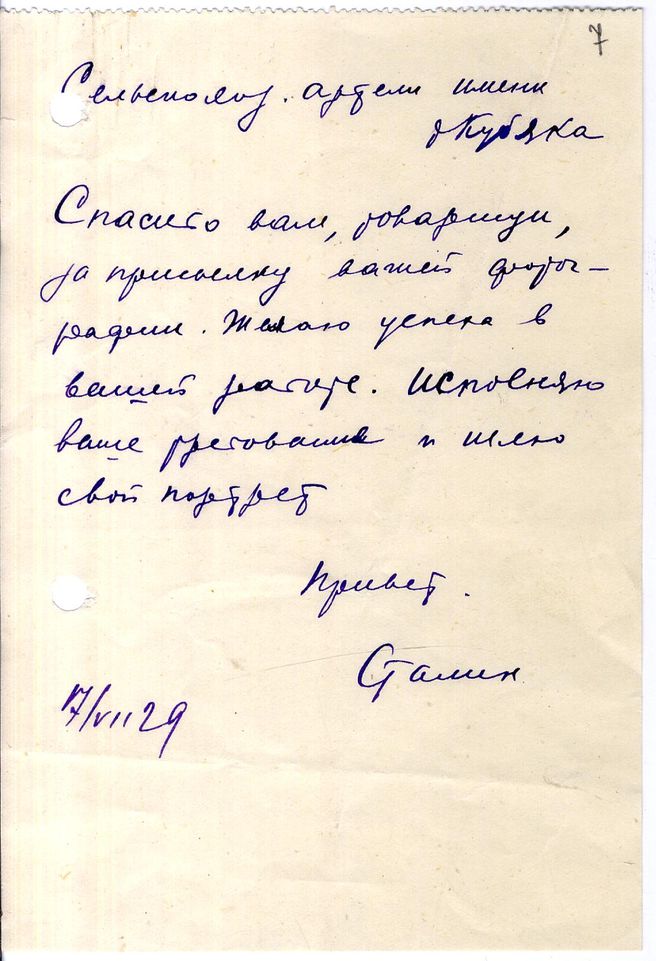 7
Сельскохоз. артели имени
т. Кубяка
Спасибо вам, товарищи,
за присылку вашей фотог-
рафии. Желаю успеха в
вашей работе. Исполняю
ваше требование и шлю
свой портрет
Привет.
Сталин
17/VII 29